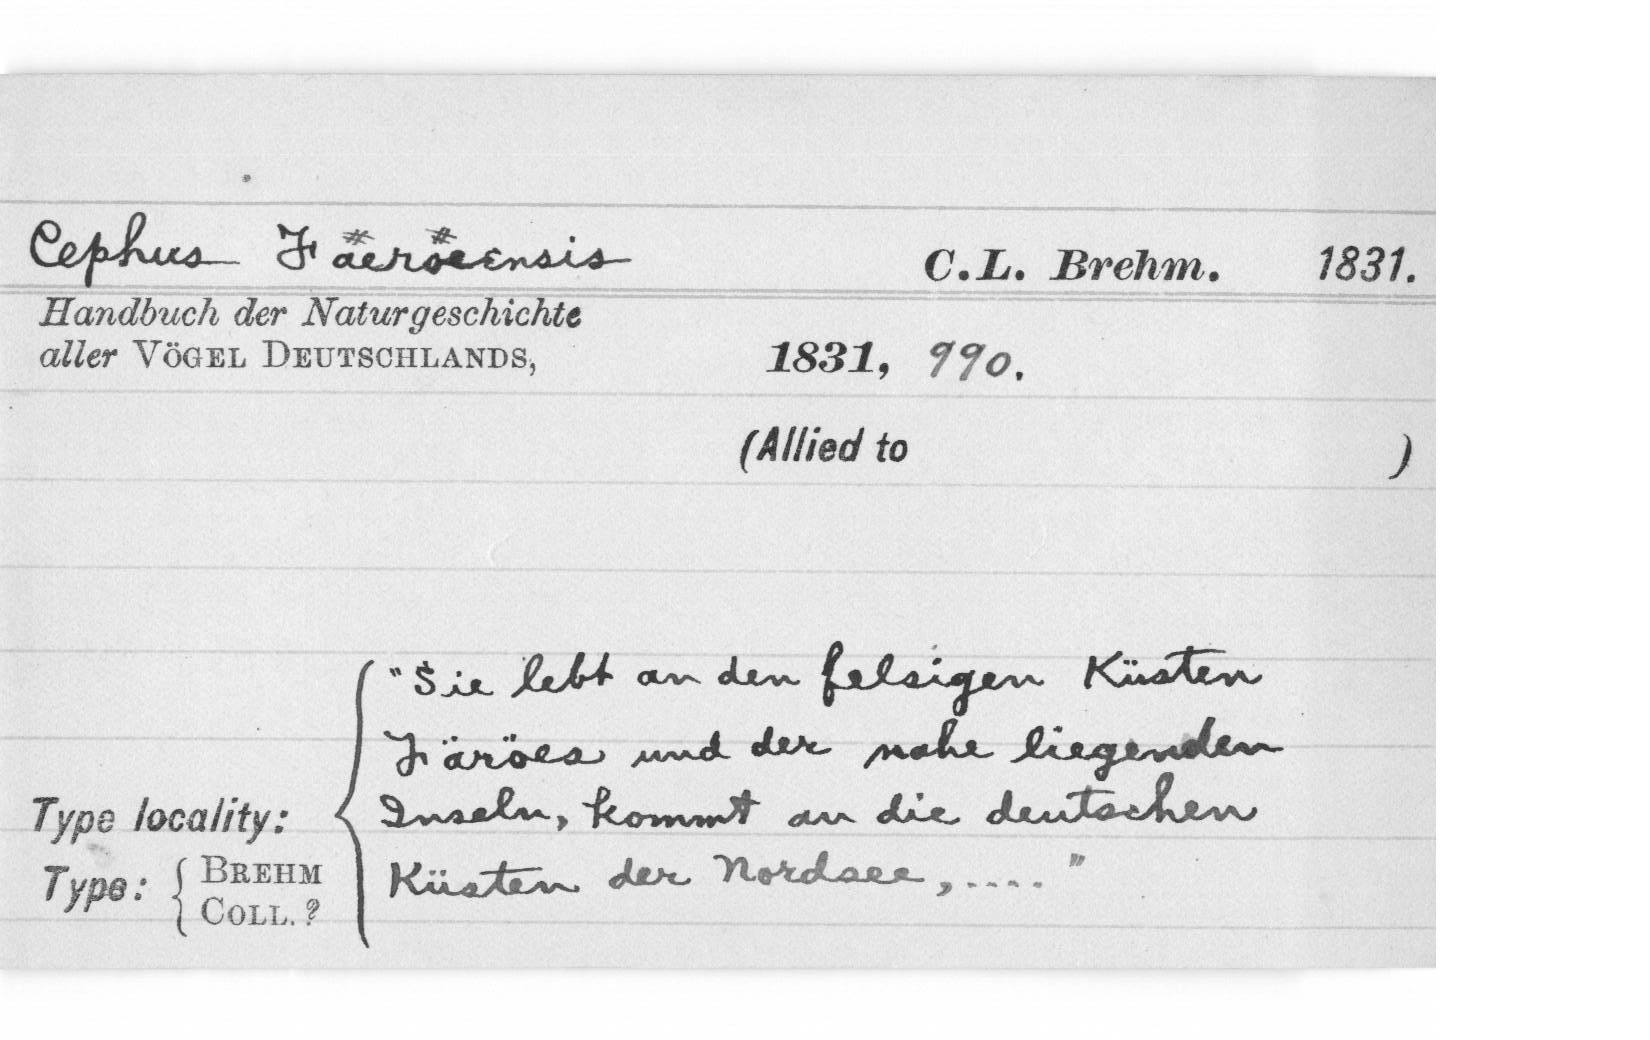 Cephus Färöeensis C.L. Brehm. 1831.
Handbuch der Naturgeschichte
aller VÖGEL DEUTSCHLANDS, 1831, 990.
(Allied to )
"Sie lebt an den felsigen Küsten
Färöes und der nahe liegenden
Type locality: Inseln, kommt an die deutschen
Type: { BREHM COLL. ? Küsten der Nordsee,...."